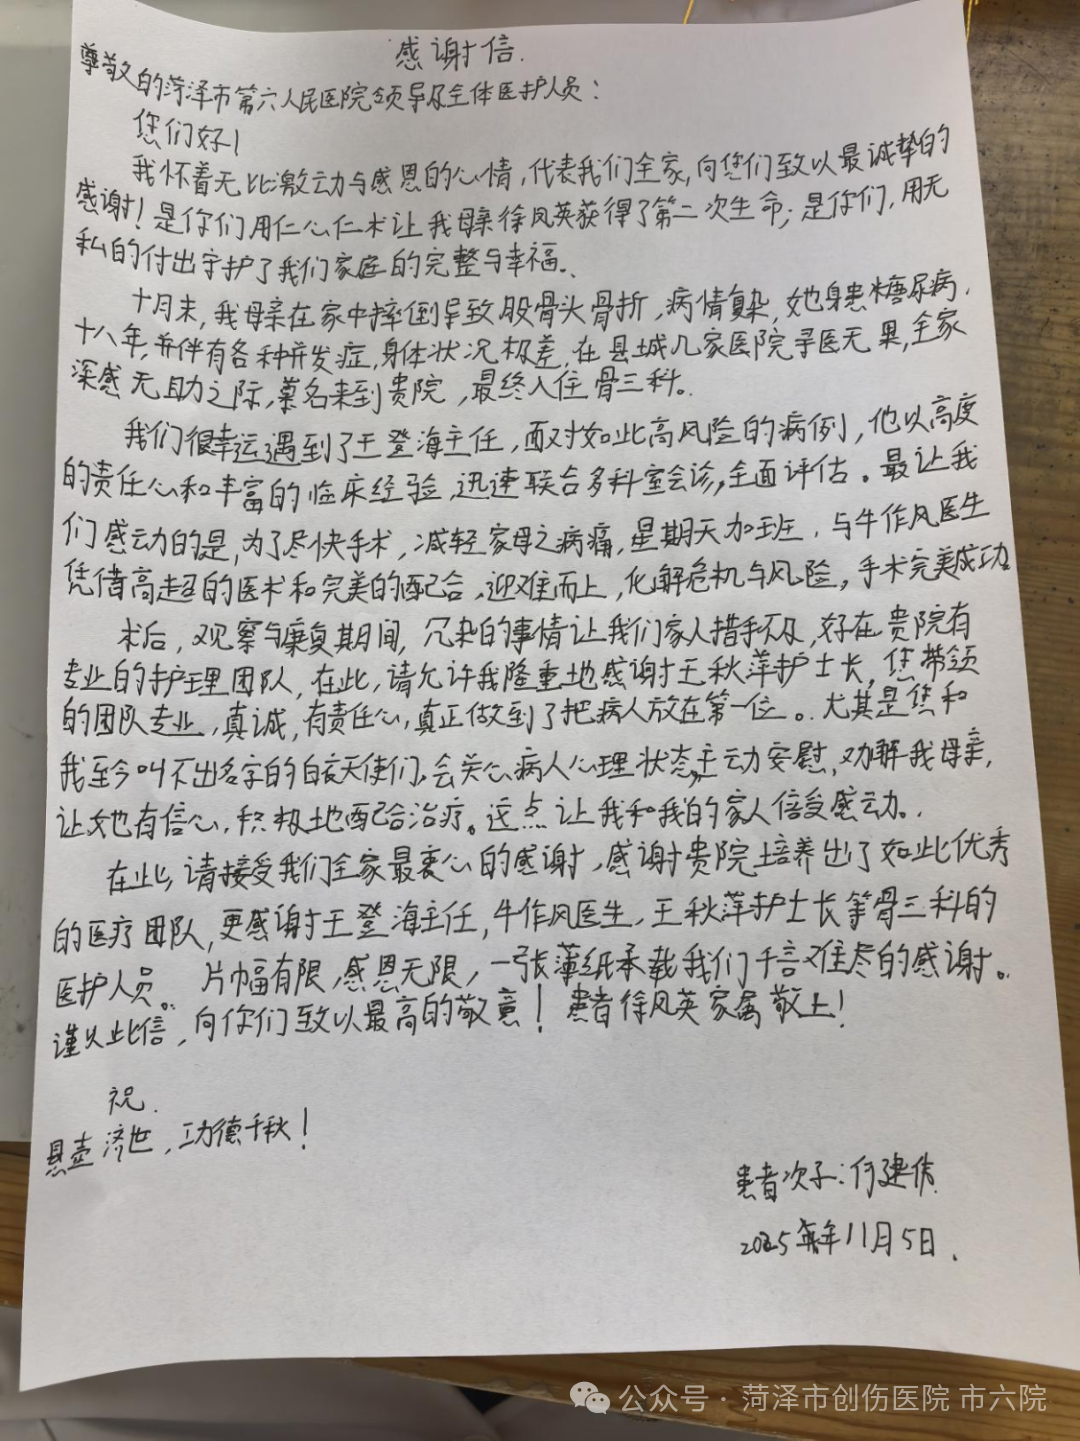 感谢信.
尊敬的菏泽市第六人民医院领导及全体医护人员：
您们好！
我怀着无比激动与感恩的心情,代表我们全家,向您们致以最诚挚的
感谢！是你们用仁心仁术让我母亲徐凤英获得了第二次生命；是你们,用无
私的付出守护了我们家庭的完整与幸福。
十月末,我母亲在家中摔倒导致股骨头骨折,病情复杂,她身患糖尿病
十八年,并伴有各种并发症,身体状况极差,在县城几家医院寻医无果,全家
深感无助之际,慕名来到贵院,最终入住骨三科。
我们很幸运遇到了王登海主任,面对如此高风险的病例,他以高度
的责任心和丰富的临床经验,迅速联合多科室会诊,全面评估。最让我
们感动的是,为了尽快手术,减轻家母之病痛,星期天加班,与牛作风医生
凭借高超的医术和完美的配合,迎难而上,化解危机与风险,手术完美成功
术后,观察与康复期间,冗杂的事情让我们家人措手不及,好在贵院有
专业的护理团队,在此,请允许我隆重地感谢王秋萍护士长,您带领
的团队专业,真诚,有责任心,真正做到了把病人放在第一位。尤其是您和
我至今叫不出名字的白衣天使们,会关心病人心理状态,主动安慰,劝解我母亲,
让她有信心,积极地配合治疗。这点让我和我的家人倍受感动.
在此,请接受我们全家最衷心的感谢,感谢贵院培养出了如此优秀
的医疗团队,更感谢王登海主任,牛作风医生,王秋萍护士长等骨三科的
医护人员。片幅有限,感恩无限,一张薄纸承载我们千言难尽的感谢。
谨以此信,向你们致以最高的敬意！患者徐凤英家属敬上！
祝.
悬壶济世,功德千秋！
患者次子：何建
2025年11月5日.
公众号·菏泽市创伤医院 市六院